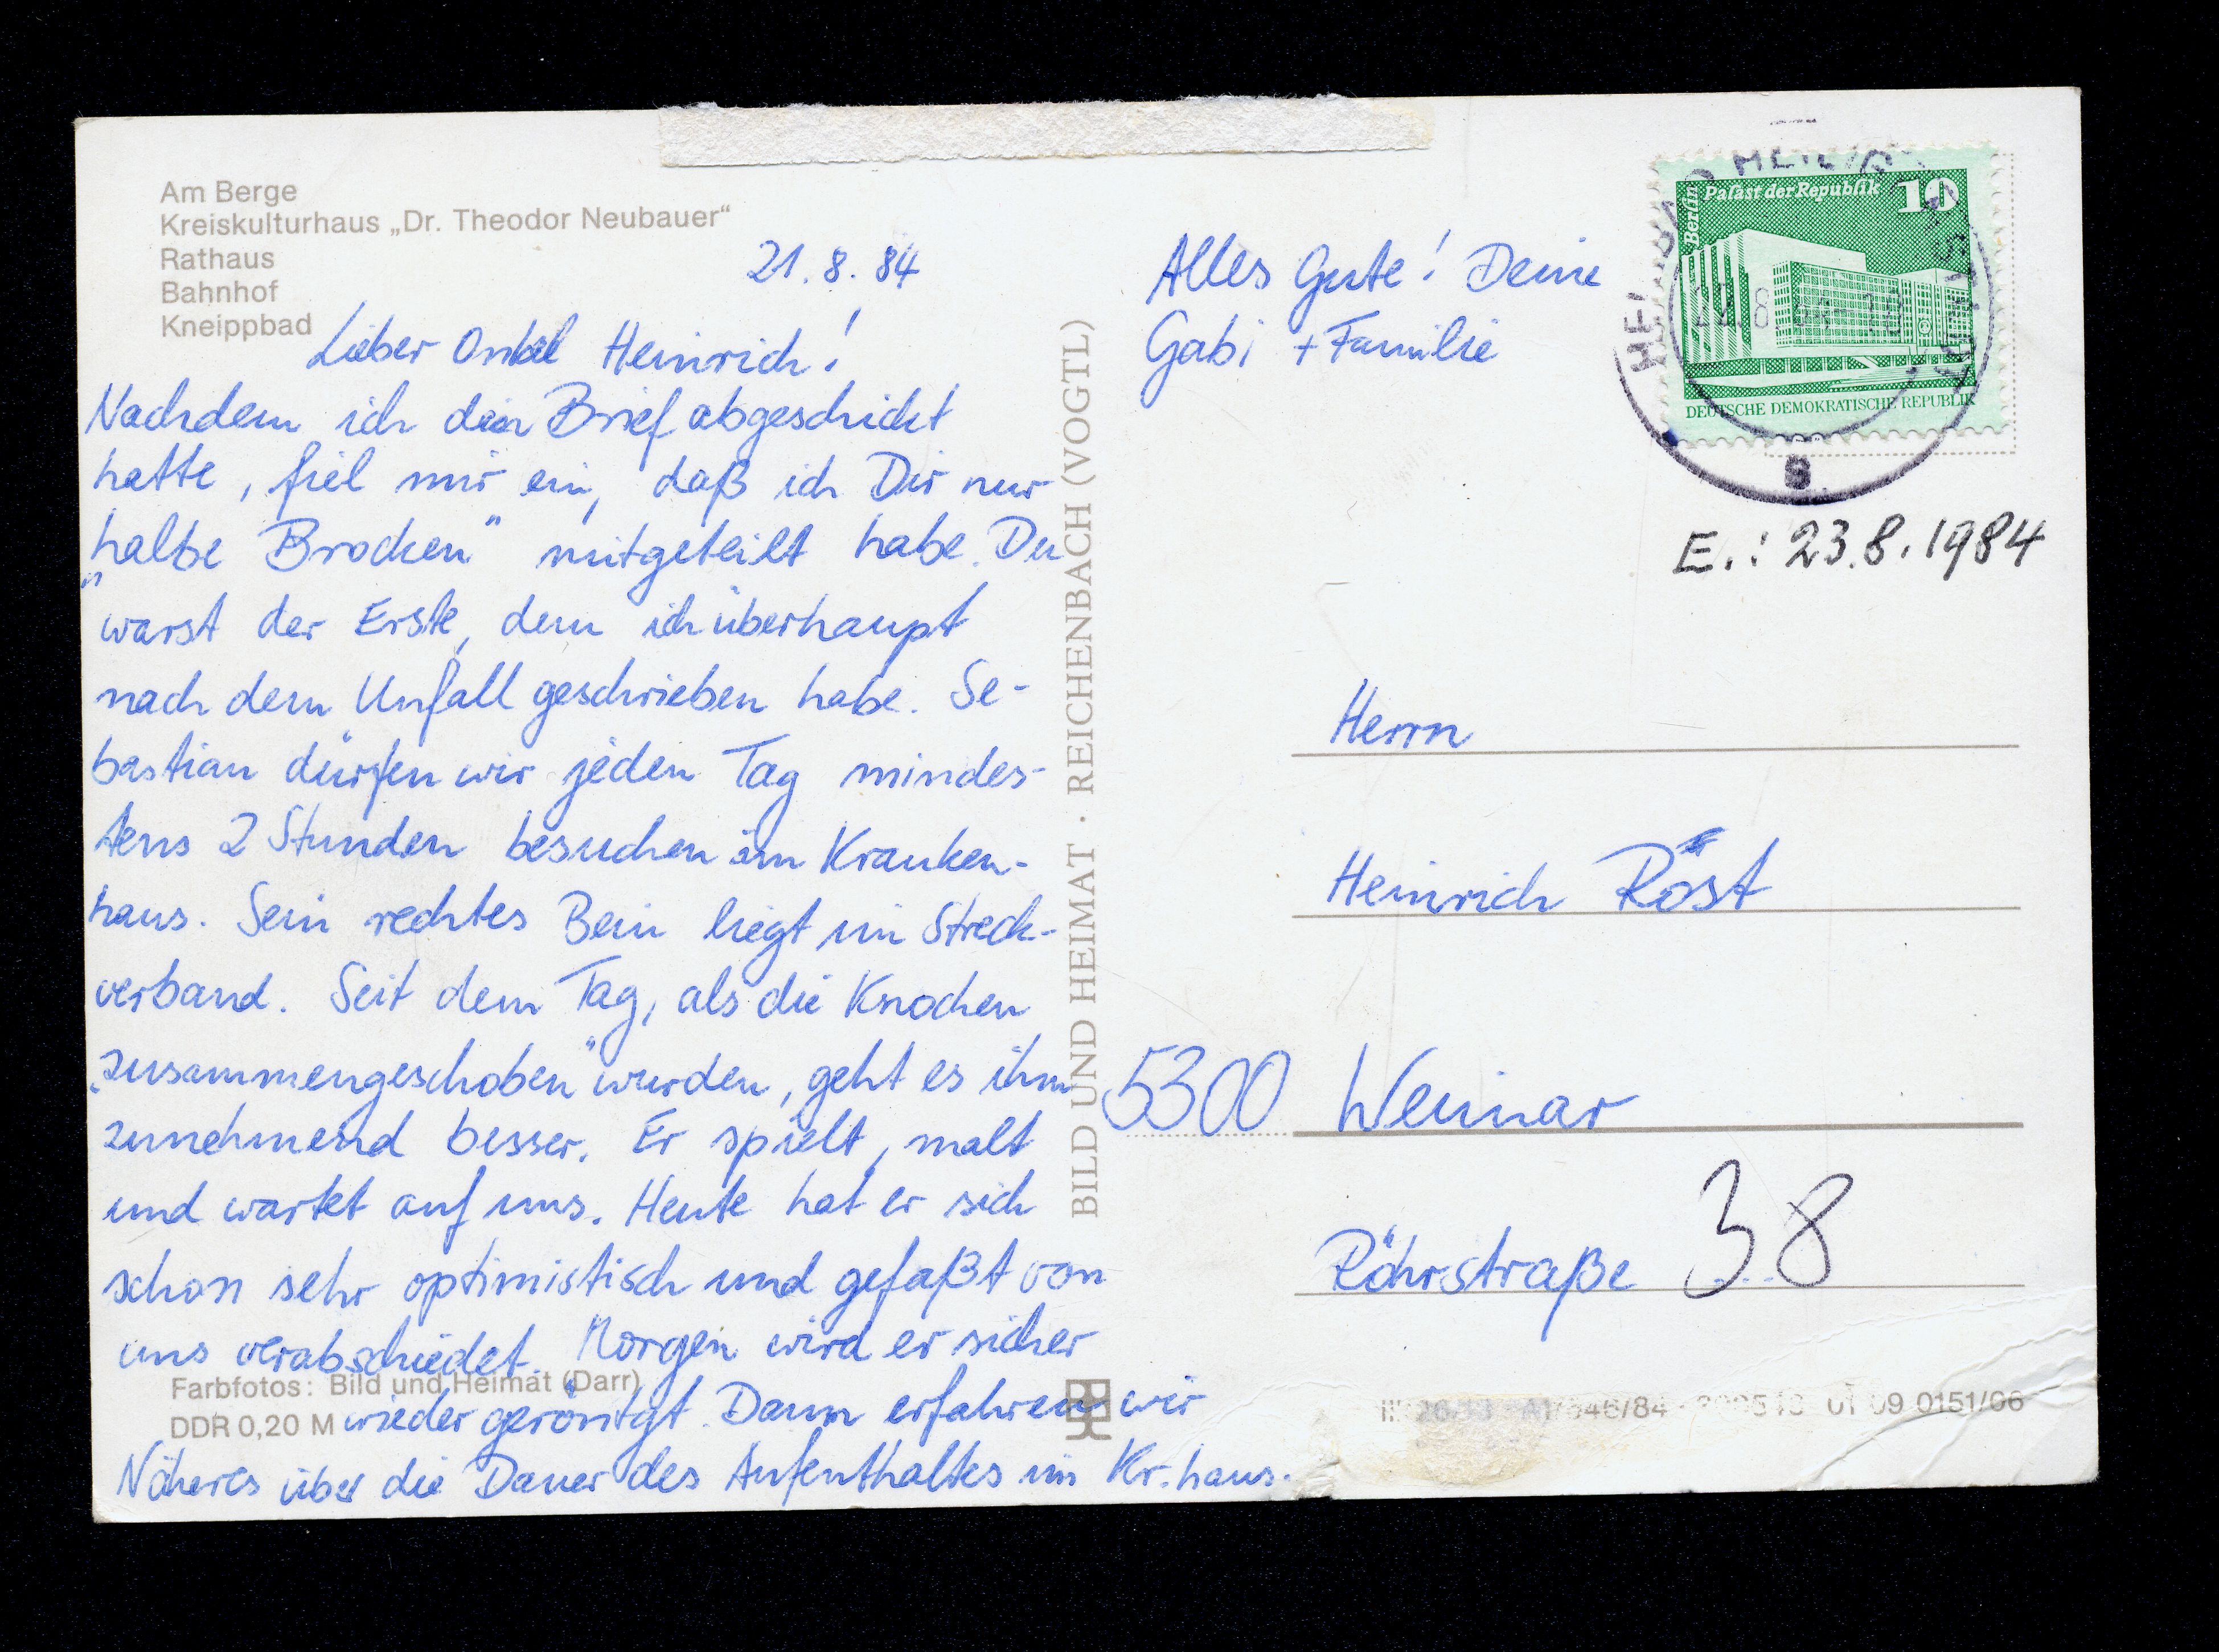 Am Berge
Kreiskulturhaus „Dr. Theodor Neubauer“
Rathaus
Bahnhof
Kneippbad
21. 8. 84
Lieber Onkel Heinrich!
Nachdem ich den Brief abgeschickt
hatte, fiel mir ein, daß ich Dir nur
„halbe Brocken“ mitgeteilt habe. Du
warst der Erste, dem ich überhaupt
nach dem Unfall geschrieben habe. Se-
bastian dürfen wir jeden Tag mindes-
tens 2 Stunden besuchen im Kranken-
haus. Sein rechtes Bein liegt im Streck-
verband. Seit dem Tag, als die Knochen
„zusammengeschoben“ wurden, geht es ihm
zunehmend besser. Er spielt, malt
und wartet auf uns. Heute hat er sich
schon sehr optimistisch und gefaßt von
uns verabschiedet. Morgen wird er sicher
wieder geröntgt. Dann erfahren wir
Näheres über die Dauer des Aufenthaltes im Kr.haus.
Farbfotos: Bild und Heimat (Darr)
DDR 0,20 M
BILD UND HEIMAT · REICHENBACH (VOGTL)
Alles Gute! Deine
Gabi + Familie
Berlin
Palast der Republik
10
DEUTSCHE DEMOKRATISCHE REPUBLIK
s
E.: 23.8.1984
Herrn
Heinrich Röst
5300 Weimar
Röhrstraße 38
01 09 0151/06